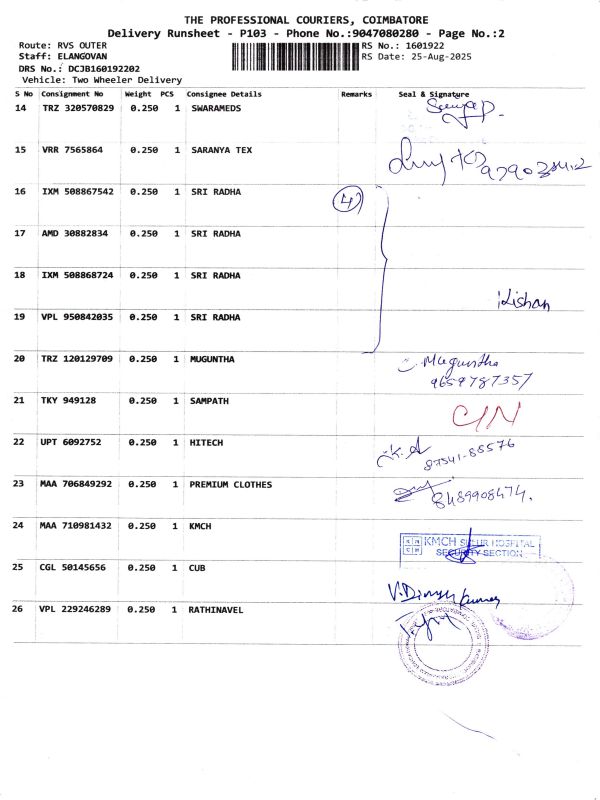 THE PROFESSIONAL COURIERS, COIMBATORE
Delivery Runsheet - P103 - Phone No.:9047080280 - Page No.:2
Route: RVS OUTER
RS No.: 1601922
Staff: ELANGOVAN
RS Date: 25-Aug-2025
DRS No.: DCJB160192202
Vehicle: Two Wheeler Delivery
S No Consignment No Weight PCS Consignee Details Remarks Seal & Signature
14 TRZ 320570829 0.250 1 SWARAMEDS
15 VRR 7565864 0.250 1 SARANYA TEX
16 IXM 508867542 0.250 1 SRI RADHA 4
17 AMD 30882834 0.250 1 SRI RADHA
18 IXM 508868724 0.250 1 SRI RADHA
Kishan
19 VPL 950842035 0.250 1 SRI RADHA
20 TRZ 120129709 0.250 1 MUGUNTHA Muguntha
9659787357
21 TKY 949128 0.250 1 SAMPATH C/N
22 UPT 6092752 0.250 1 HITECH 87541-88576
23 MAA 706849292 0.250 1 PREMIUM CLOTHES 8489908474.
24 MAA 710981432 0.250 1 KMCH KMCH SULUR HOSPITAL
SECURITY SECTION
25 CGL 50145656 0.250 1 CUB
26 VPL 229246289 0.250 1 RATHINAVEL